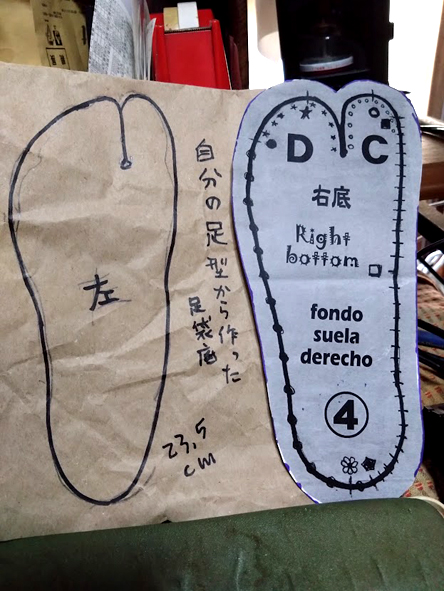 左
自分の足型から作った
足袋底
23.5
cm
D C
右底
Right
bottom
fondo
suela
derecho
4